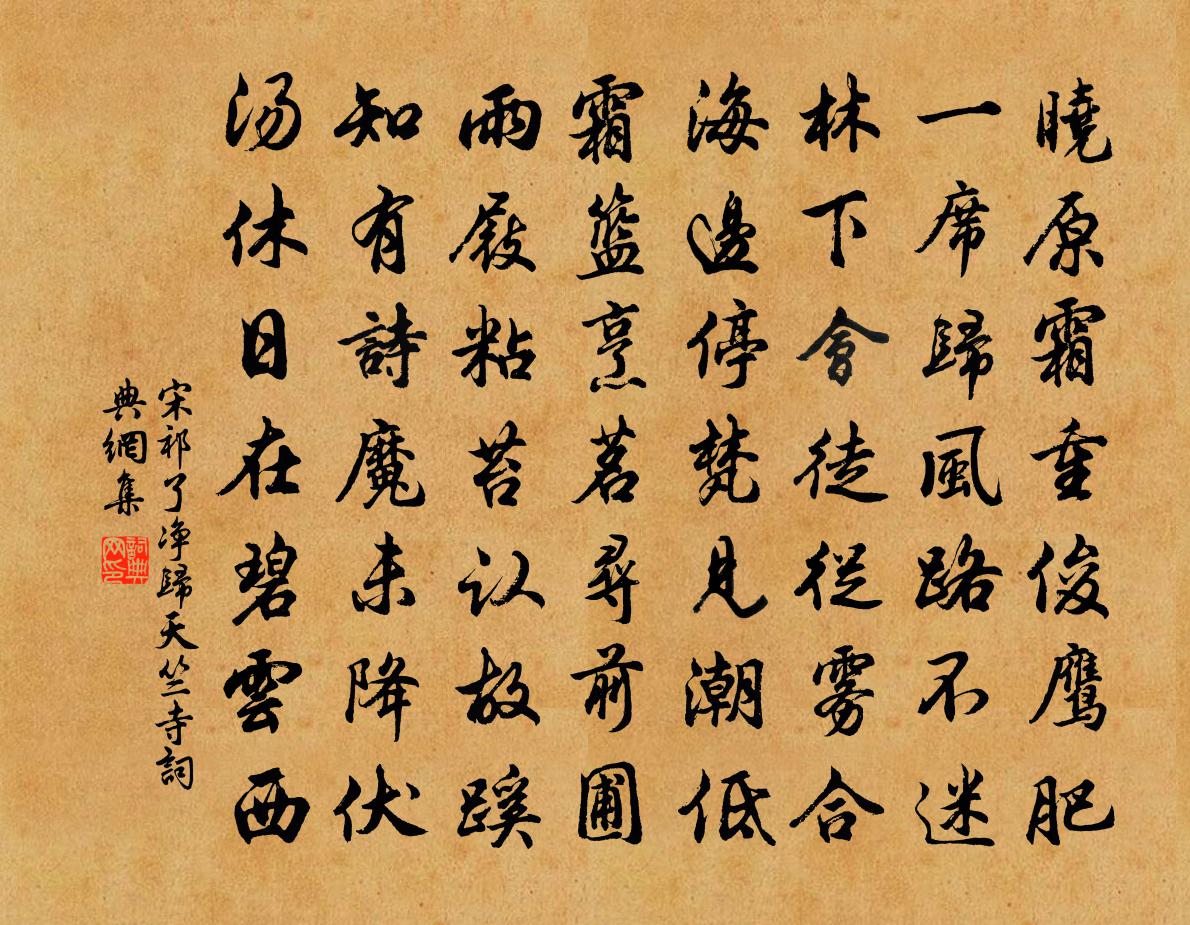 曉原霜重俊鷹肥
一席歸風路不迷
林下會徒從雾合
海邊停梵見潮低
霜籃烹茗尋前圃
雨屐粘苔认故蹊
知有詩魔未降伏
湯休日在碧雲西
宋祁了净歸天竺寺詞
典網集
詞典
网印